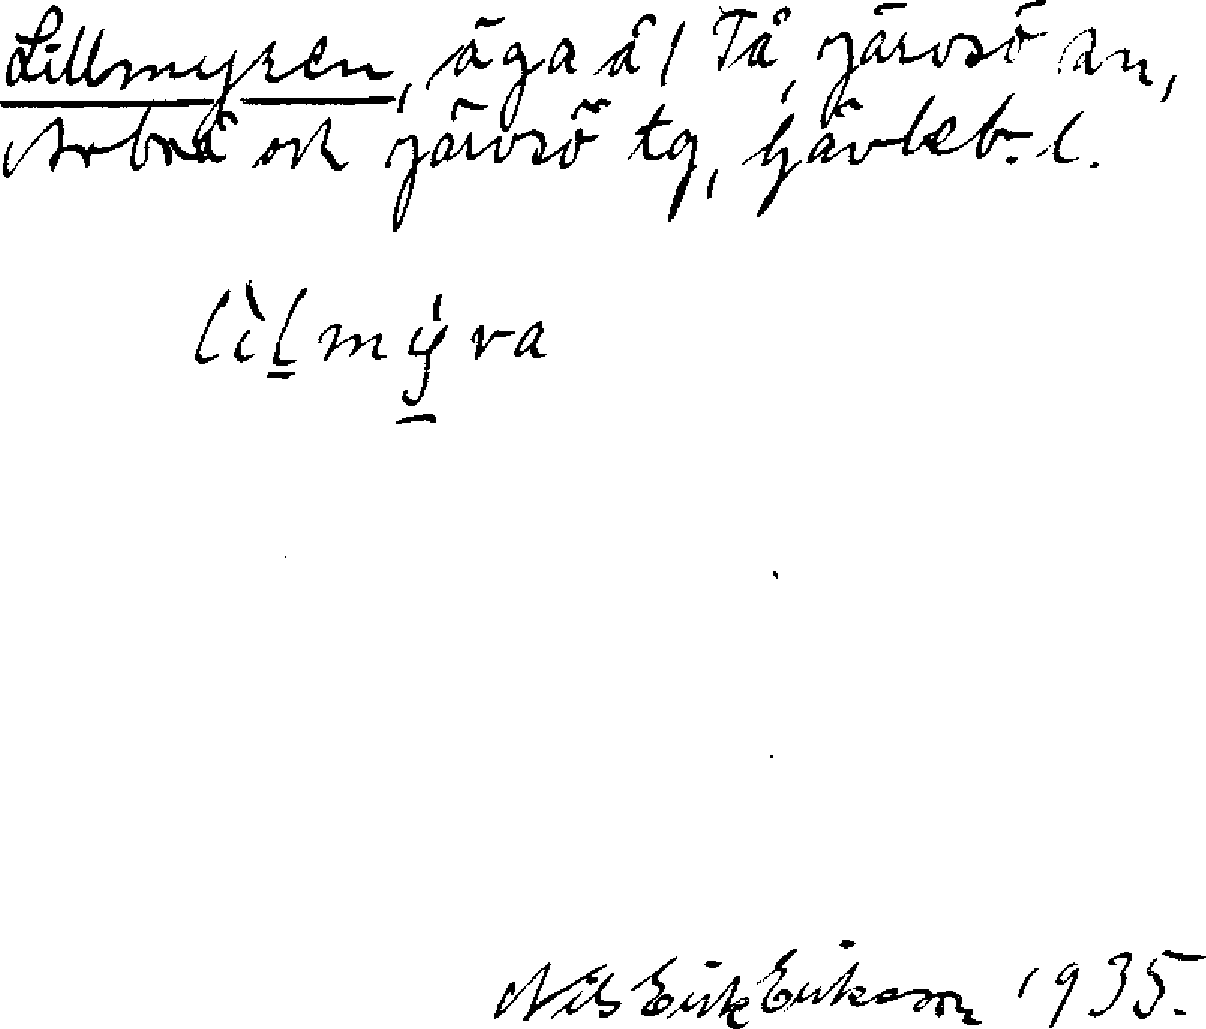 Lillmyren, äga å l Tå, Järvsö sn,
Arbrå och Järvsö tg, Gävleb. l.
lìlmy̍ra
Nils Erik Eriksson 1935.